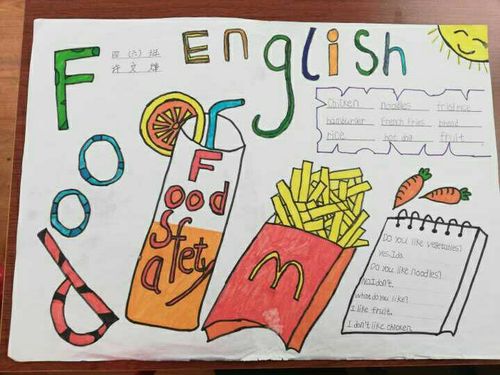 English
四(六)班
Food
chicken noodles fried rice
hamburger french fries bread
rice hot dog fruit
Food
Safety
M
Do you like vegetables?
Yes.I do.
Do you like noodles?
No.I don't.
what do you like?
I like fruit.
I don't like chicken.